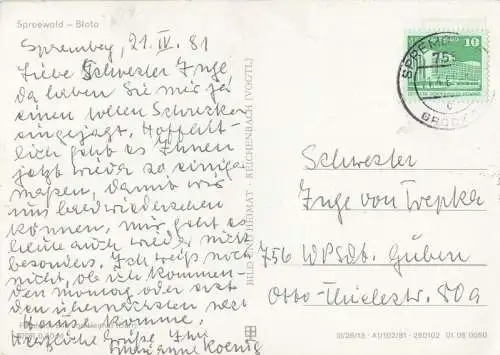 Spreewald – Błota
Spremberg, 21. IV. 81
Liebe Schwester Inge,
da haben Sie mir ja
einen tollen Schrecken
eingejagt. Hoffent-
lich geht es Ihnen
jetzt wieder so einiger-
maßen, damit wir
uns bald wiedersehen
können, mir geht es
heute auch wieder nicht
besonders. Ich weiß noch
nicht, ob ich kommen-
den montag oder erst
den übernächsten nach
Haus komme.
Herzliche Grüße Ihre
Marianne Koenig
BILD UND HEIMAT · REICHENBACH (VOGTL)
10
SPREMBERG
75
Schwester
Inge von Trepka
756 WPSdtb. Guben
Otto-Thielestr. 80a
III/26/13 · A1/102/81 · 260102 01 06 0050